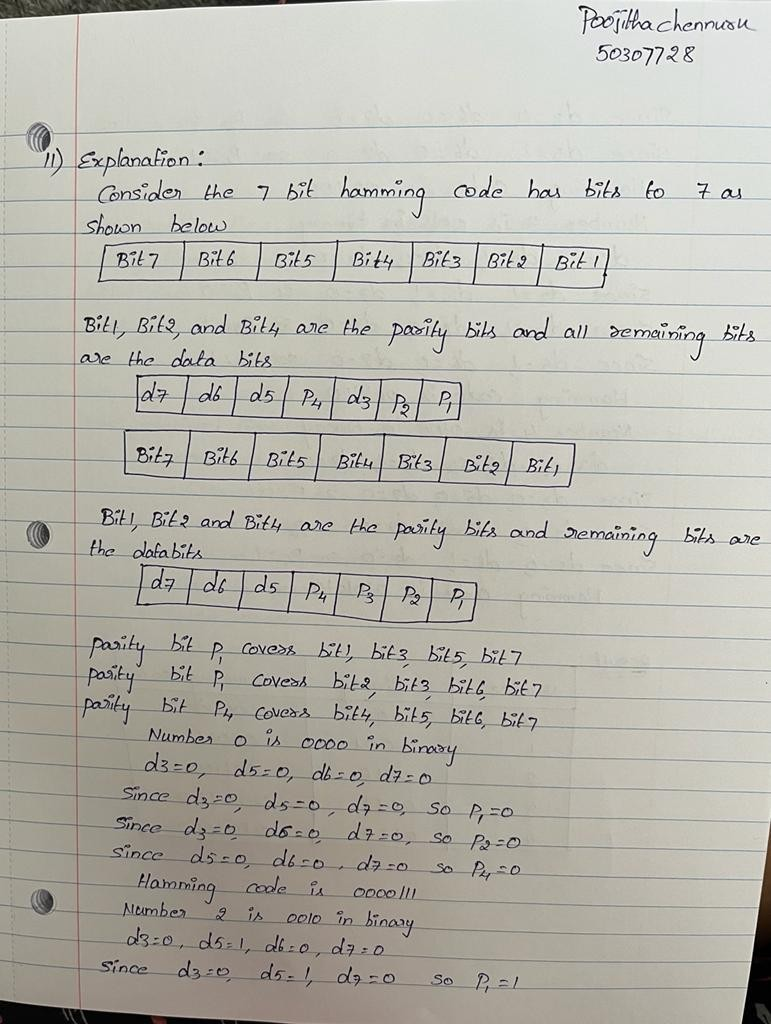 Poojitha chennuru
50307728
11) Explanation :
Consider the 7 bit hamming code has bits to 7 as
shown below
Bit7 Bit6 Bit5 Bit4 Bit3 Bit2 Bit1
Bit1, Bit2, and Bit4 are the parity bits and all remaining bits
are the data bits
d7 d6 d5 P4 d3 P2 P1
Bit7 Bit6 Bit5 Bit4 Bit3 Bit2 Bit1
Bit1, Bit2 and Bit4 are the parity bits and remaining bits are
the databits
d7 d6 d5 P4 P3 P2 P1
parity bit P1 covers bit1, bit3, bit5, bit7
parity bit P1 covers bit2, bit3, bit6, bit7
parity bit P4 covers bit4, bit5, bit6, bit7
Number 0 is 0000 in binary
d3=0, d5=0, d6=0, d7=0
Since d3=0, d5=0, d7=0, so P1=0
Since d3=0, d6=0, d7=0, so P2=0
since d5=0, d6=0, d7=0 so P4=0
Hamming code is 0000111
Number 2 is 0010 in binary
d3=0, d5=1, d6=0, d7=0
Since d3=0, d5=1, d7=0 so P1=1